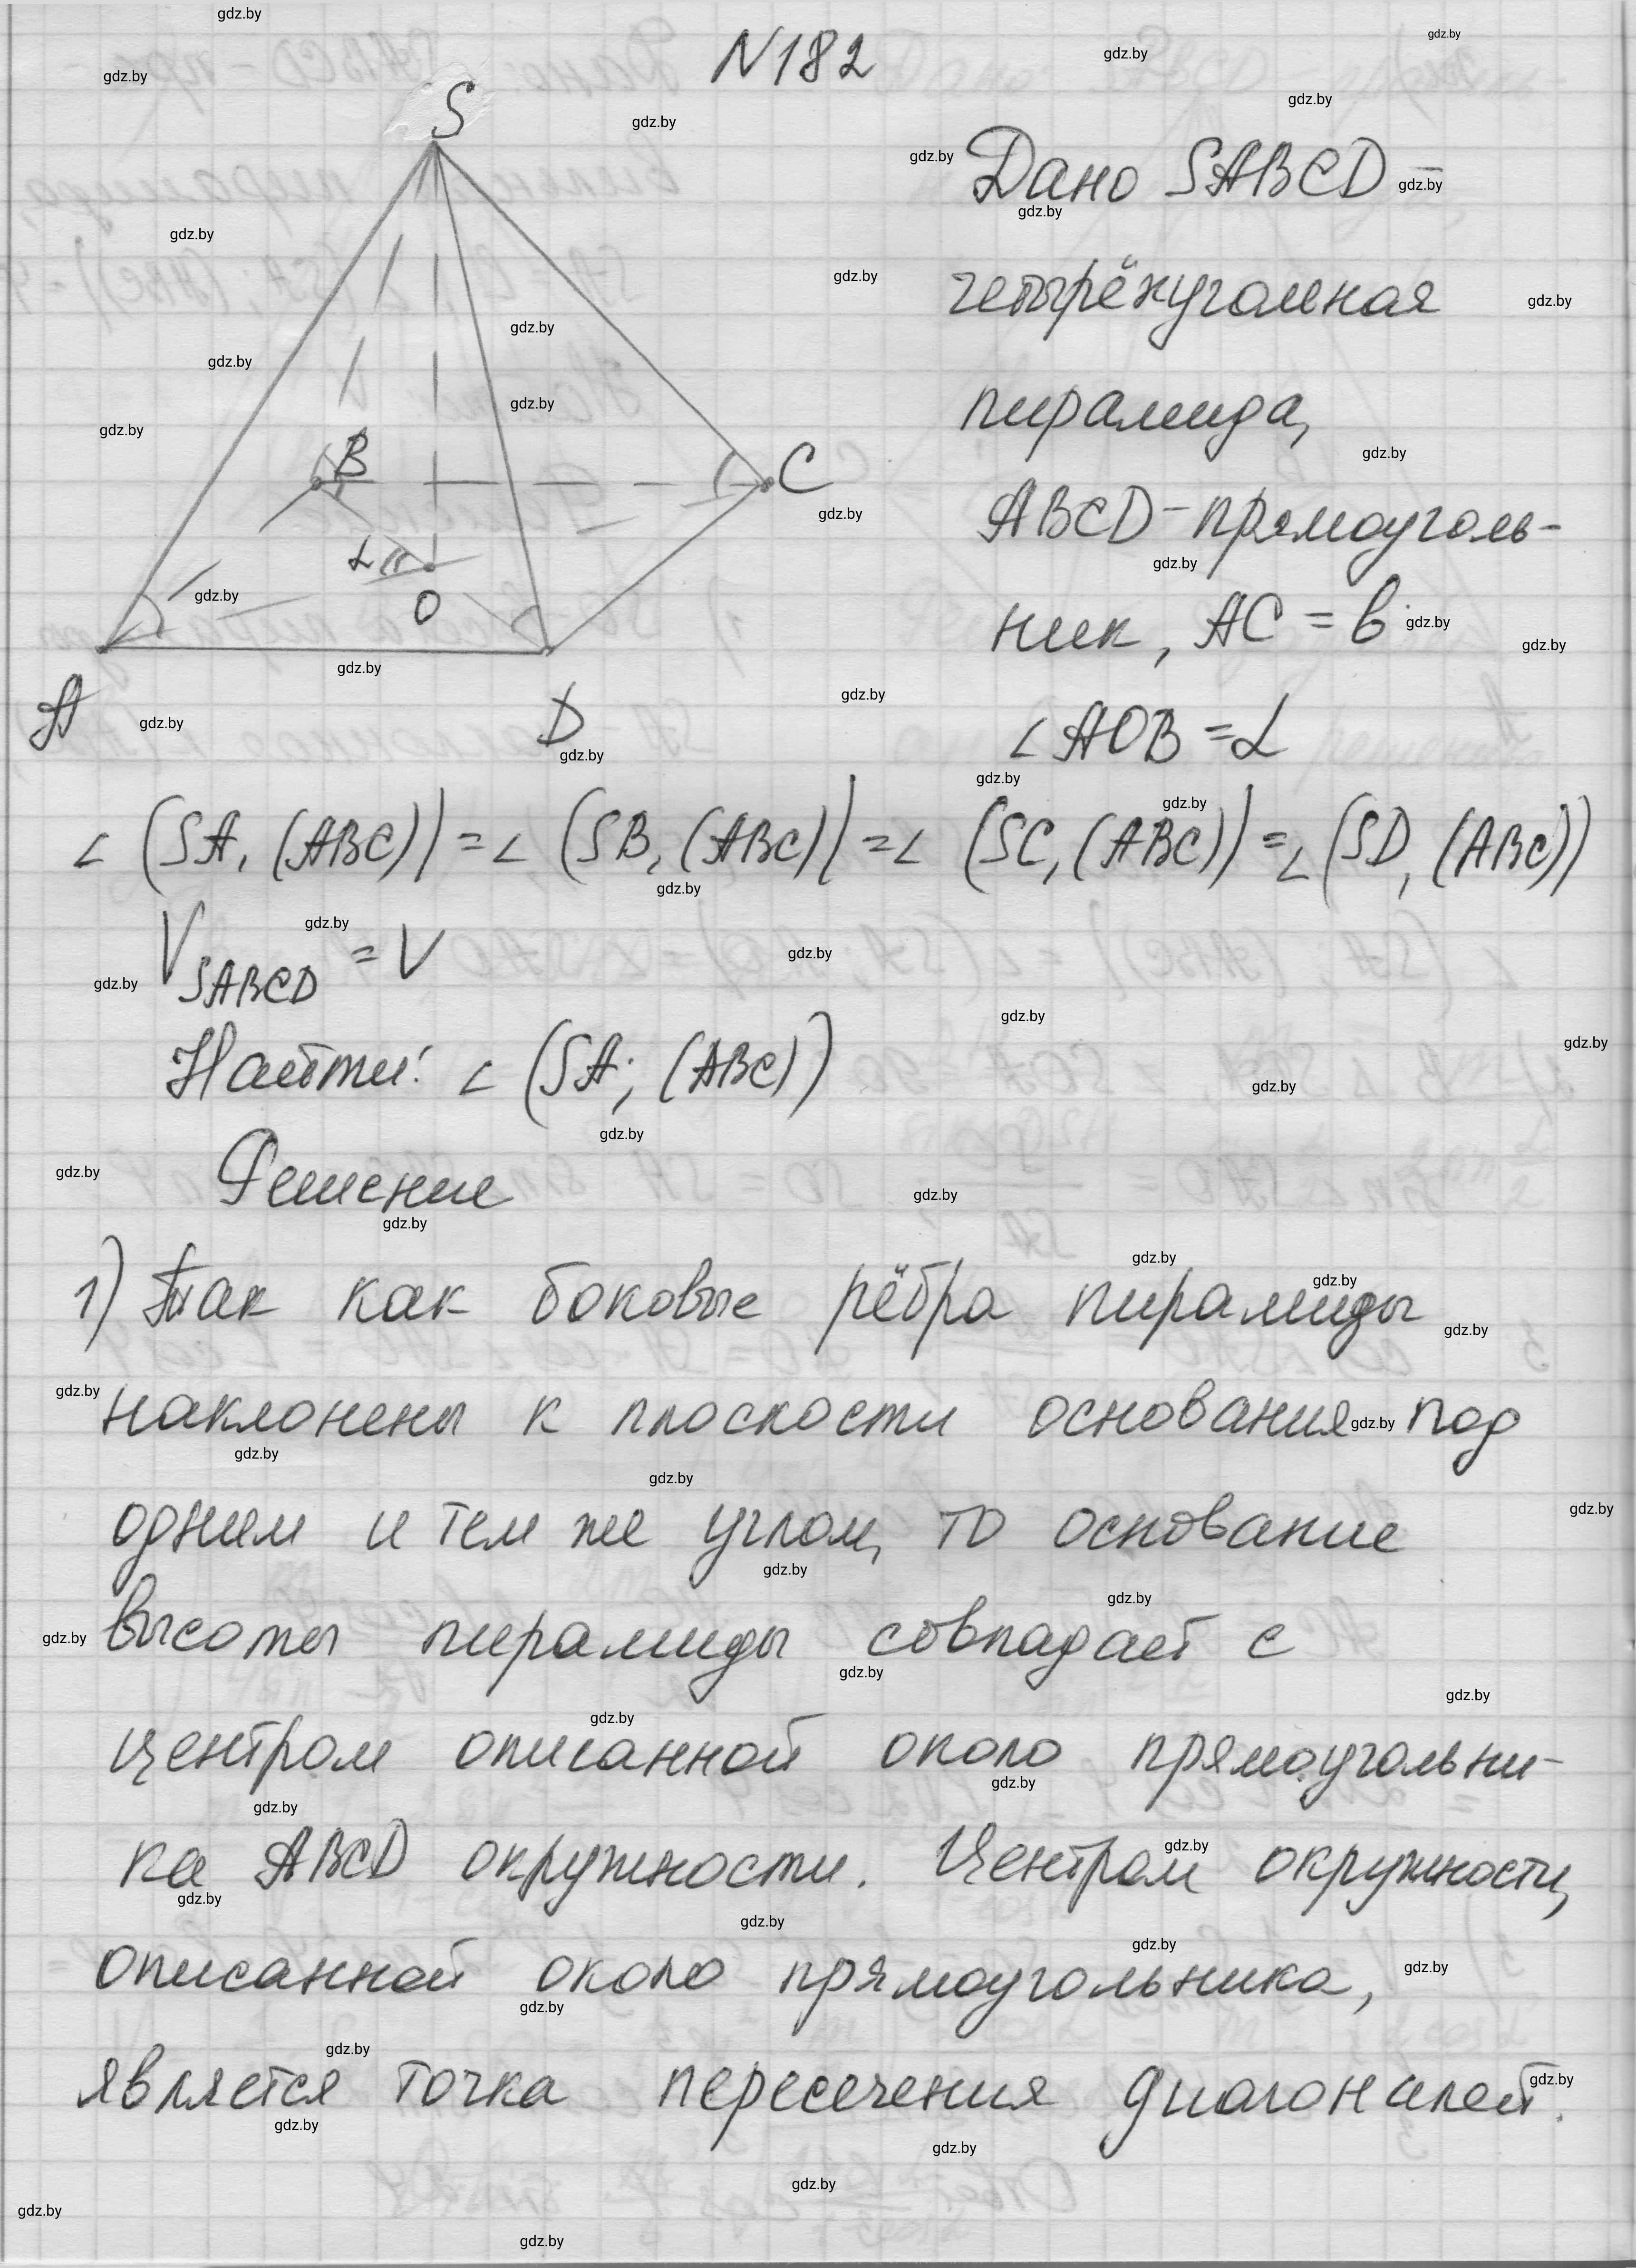 N182
S
B
C
α
O
A
D
Дано SABCD –
четырёхугольная
пирамида,
ABCD – прямоуголь-
ник, AC = b
∠ AOB = α
∠ (SA, (ABC)) = ∠ (SB, (ABC)) = ∠ (SC, (ABC)) = ∠ (SD, (ABC))
V SABCD = V
Найти: ∠ (SA; (ABC))
Решение
1) Так как боковые рёбра пирамиды
наклонены к плоскости основания под
одним и тем же углом, то основание
высоты пирамиды совпадает с
центром описанной около прямоугольни-
ка ABCD окружности. Центром окружности,
описанной около прямоугольника,
является точка пересечения диагоналей.
gdz.by